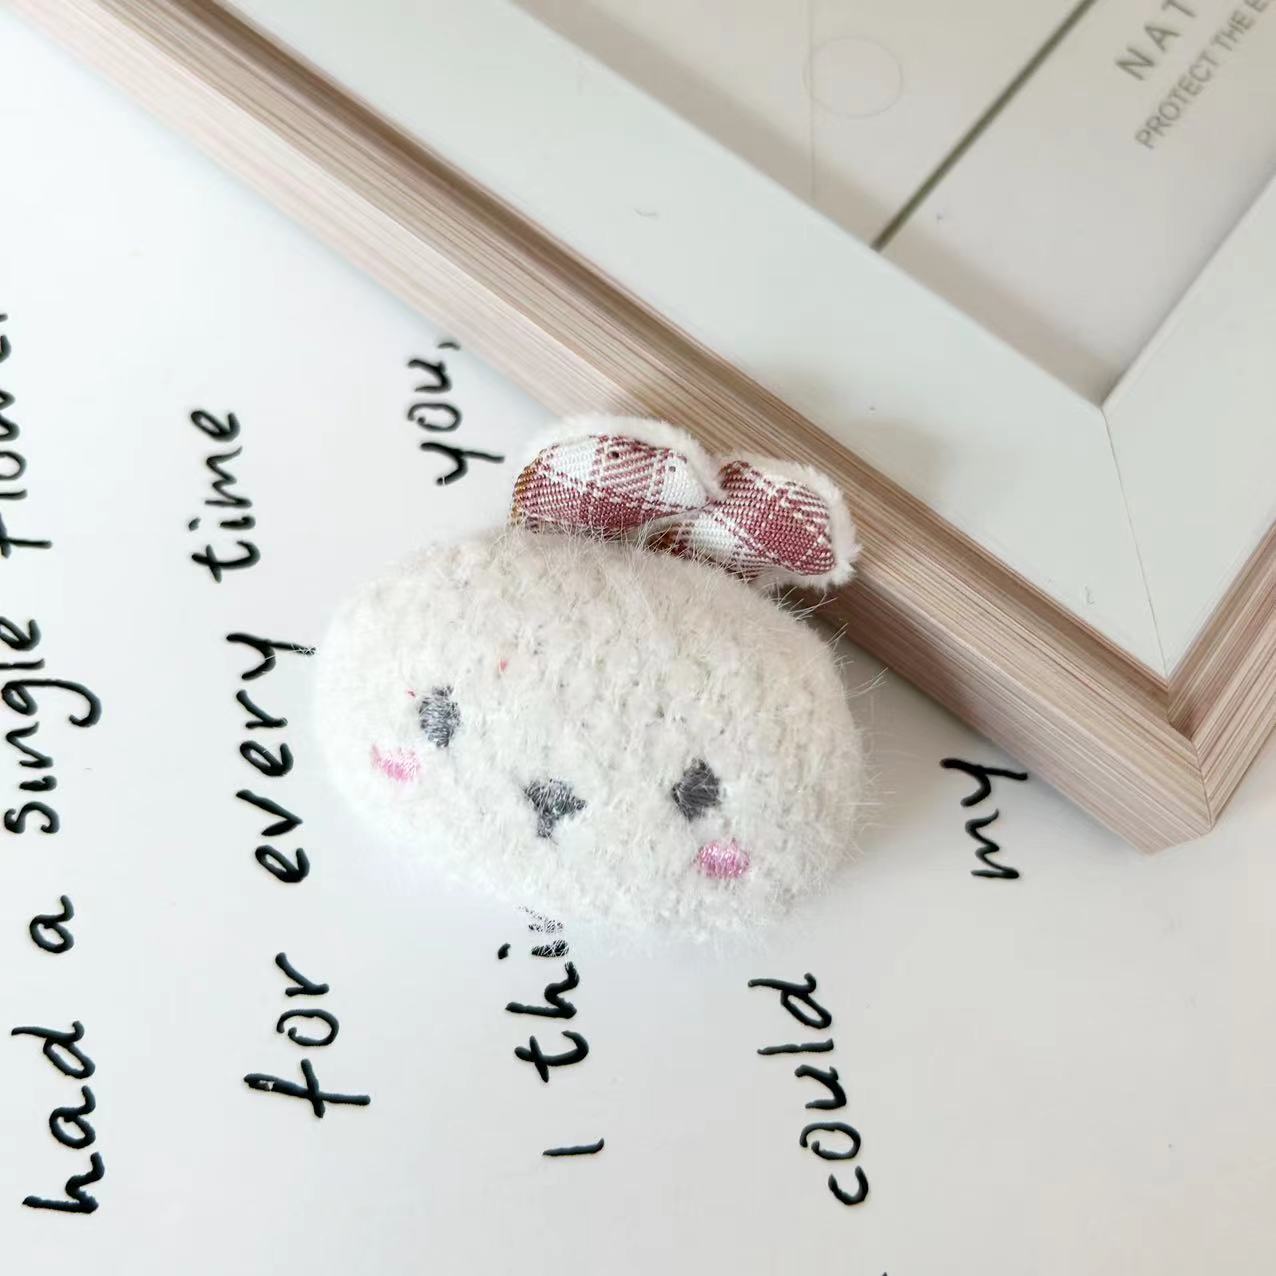 had a single flower
for every time
you,
I thi
could
my
NAT
PROTECT THE E